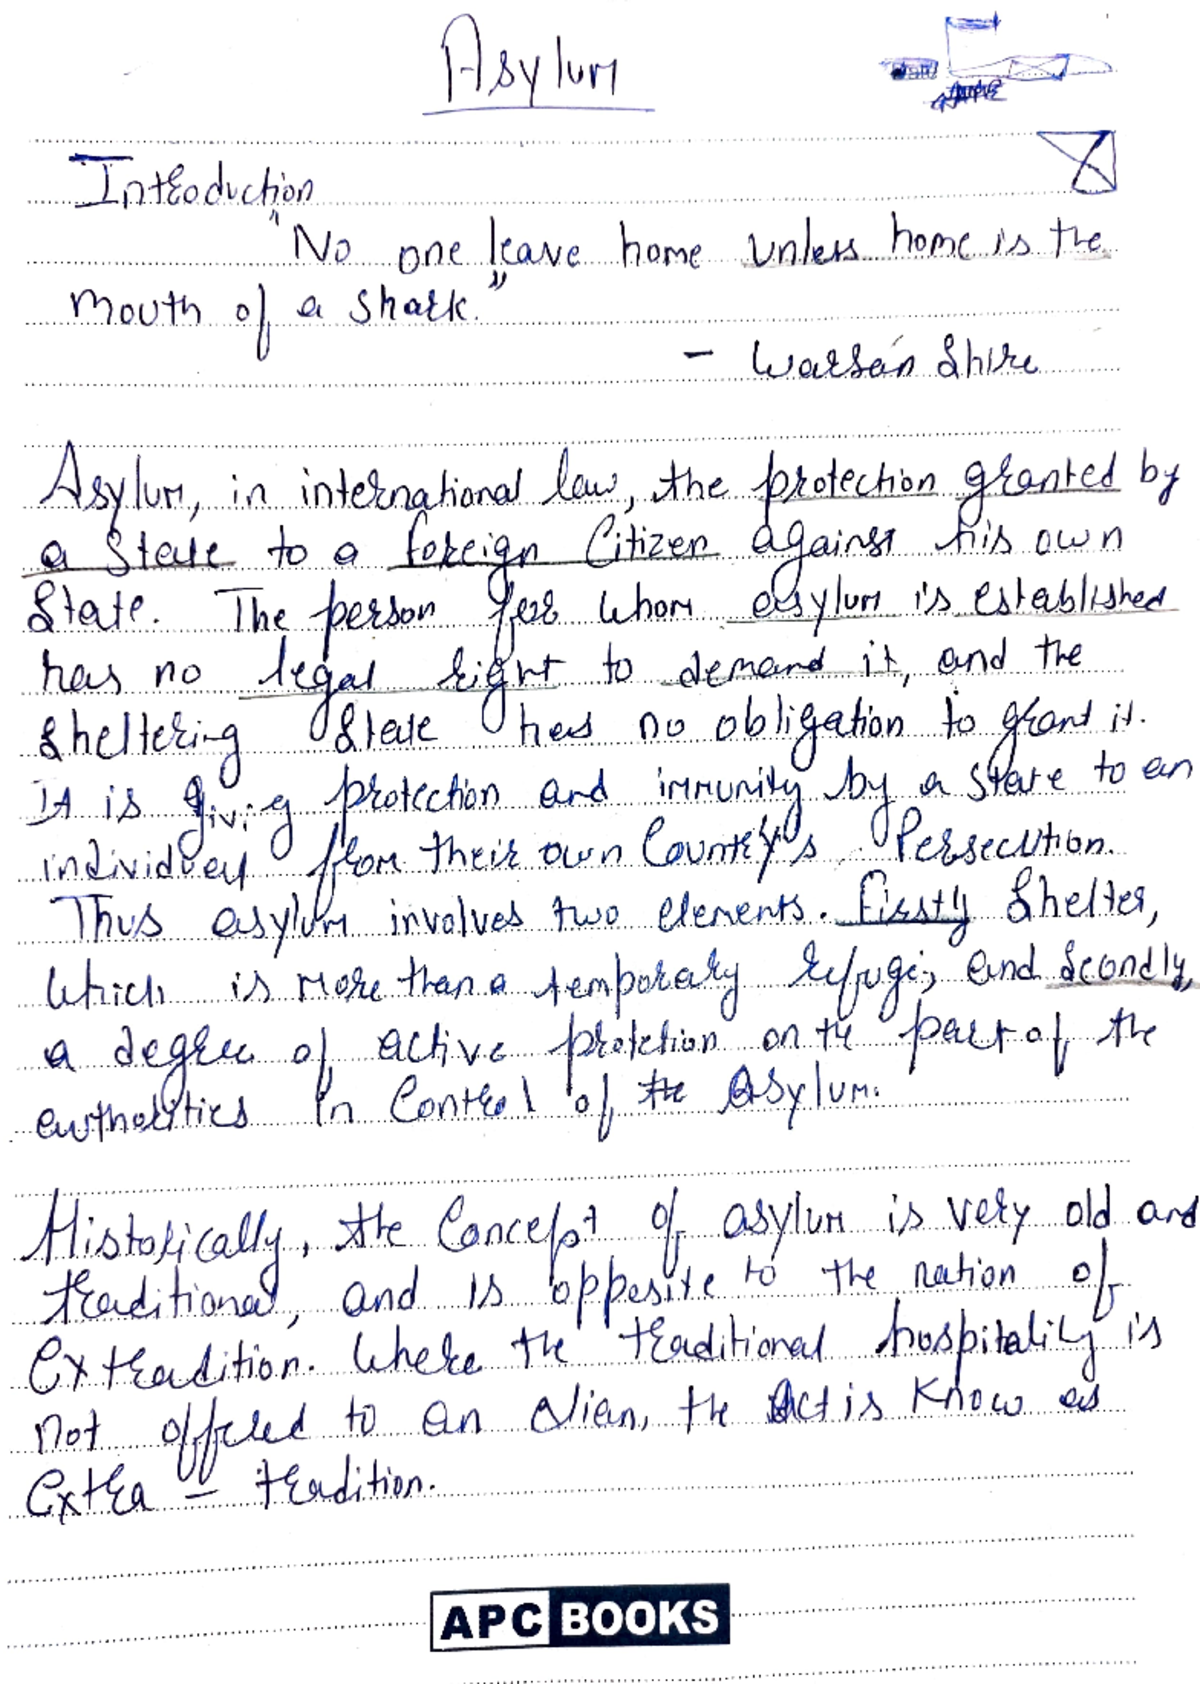 Asylum
Introduction
"No one leave home unless home is the
mouth of a shark."
- Warsan Shire
Asylum, in international law, the protection granted by
a State to a foreign Citizen against his own
State. The person for whom asylum is established
has no legal right to demand it, and the
sheltering State has no obligation to grant it.
It is giving protection and immunity by a State to an
individual from their own Country's Persecution.
Thus asylum involves two elements. Firstly Shelter,
which is more than a temporary refuge; and Scondly,
a degree of active protetion on the part of the
authorities in Control of the Asylum.
Historically, the Concept of asylum is very old and
traditional, and is opposite to the nation of
Extradition. Where the traditional hospitality is
not offered to an alien, the act is Know as
Extra - tradition.
APC BOOKS